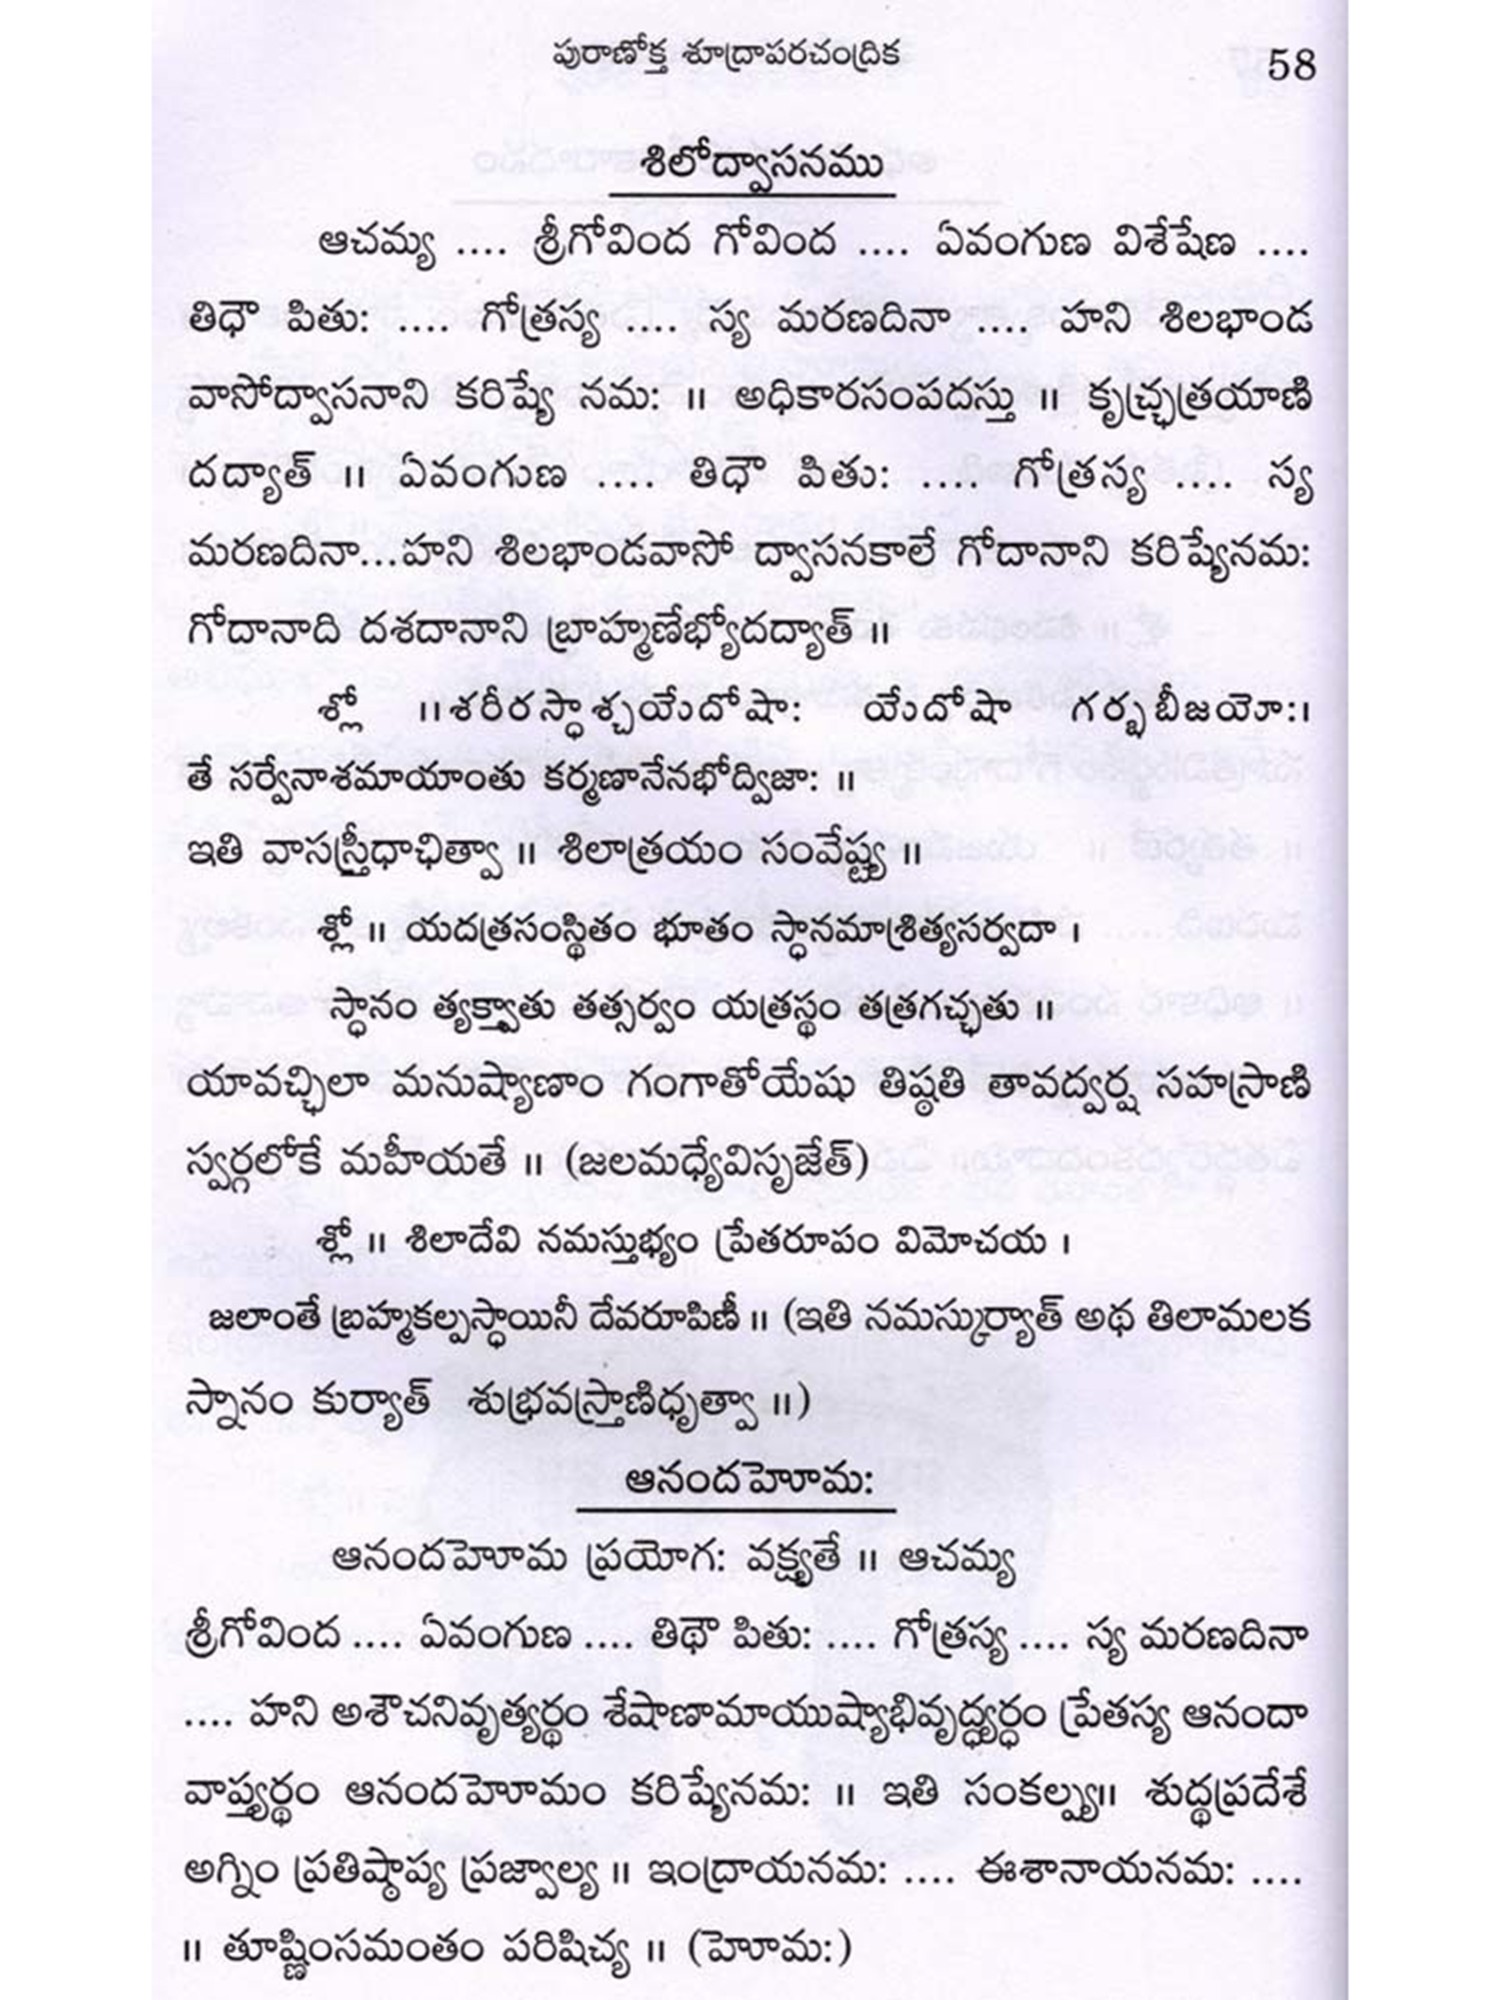 పురాణోక్త శూద్రాపరచంద్రిక
58
శిలోద్వాసనము
ఆచమ్య .... శ్రీగోవింద గోవింద .... ఏవంగుణ విశేషేణ ....
తిధౌ పితు: .... గోత్రస్య .... స్య మరణదినా .... హని శిలభాండ
వాసోద్వాసనాని కరిష్యే నమ: ॥ అధికారసంపదస్తు ॥ కృచ్ఛ్రత్రయాణి
దద్యాత్ ॥ ఏవంగుణ .... తిధౌ పితు: .... గోత్రస్య .... స్య
మరణదినా...హని శిలభాండవాసో ద్వాసనకాలే గోదానాని కరిష్యేనమ:
గోదానాది దశదానాని బ్రాహ్మణేభ్యోదద్యాత్ ॥
శ్లో ॥శరీరస్ధాశ్చయేదోషా: యేదోషా గర్భబీజయో:।
తే సర్వేనాశమాయాంతు కర్మణానేనభోద్విజా: ॥
ఇతి వాసస్త్రీధాఛిత్వా ॥ శిలాత్రయం సంవేష్ట్య ॥
శ్లో ॥ యదత్రసంస్థితం భూతం స్ధానమాశ్రిత్యసర్వదా ।
స్ధానం త్యక్త్వాతు తత్సర్వం యత్రస్థం తత్రగచ్ఛతు ॥
యావచ్ఛిలా మనుష్యాణాం గంగాతోయేషు తిష్ఠతి తావద్వర్ష సహస్రాణి
స్వర్గలోకే మహీయతే ॥ (జలమధ్యేవిసృజేత్)
శ్లో ॥ శిలాదేవి నమస్తుభ్యం ప్రేతరూపం విమోచయ ।
జలాంతే బ్రహ్మకల్పస్ధాయినీ దేవరూపిణీ ॥ (ఇతి నమస్కుర్యాత్ అథ తిలామలక
స్నానం కుర్యాత్ శుభ్రవస్త్రాణిధృత్వా ॥)
ఆనందహెూమ:
ఆనందహెూమ ప్రయోగ: వక్ష్యతే ॥ ఆచమ్య
శ్రీగోవింద .... ఏవంగుణ .... తిథౌ పితు: .... గోత్రస్య .... స్య మరణదినా
.... హని అశౌచనివృత్యర్థం శేషాణామాయుష్యాభివృద్ధ్యర్ధం ప్రేతస్య ఆనందా
వాప్త్యర్థం ఆనందహెూమం కరిష్యేనమ: ॥ ఇతి సంకల్ప్య॥ శుద్ధప్రదేశే
అగ్నిం ప్రతిష్ఠాప్య ప్రజ్వాల్య ॥ ఇంద్రాయనమ: .... ఈశానాయనమ: ....
॥ తూష్ణింసమంతం పరిషిచ్య ॥ (హెూమ:)